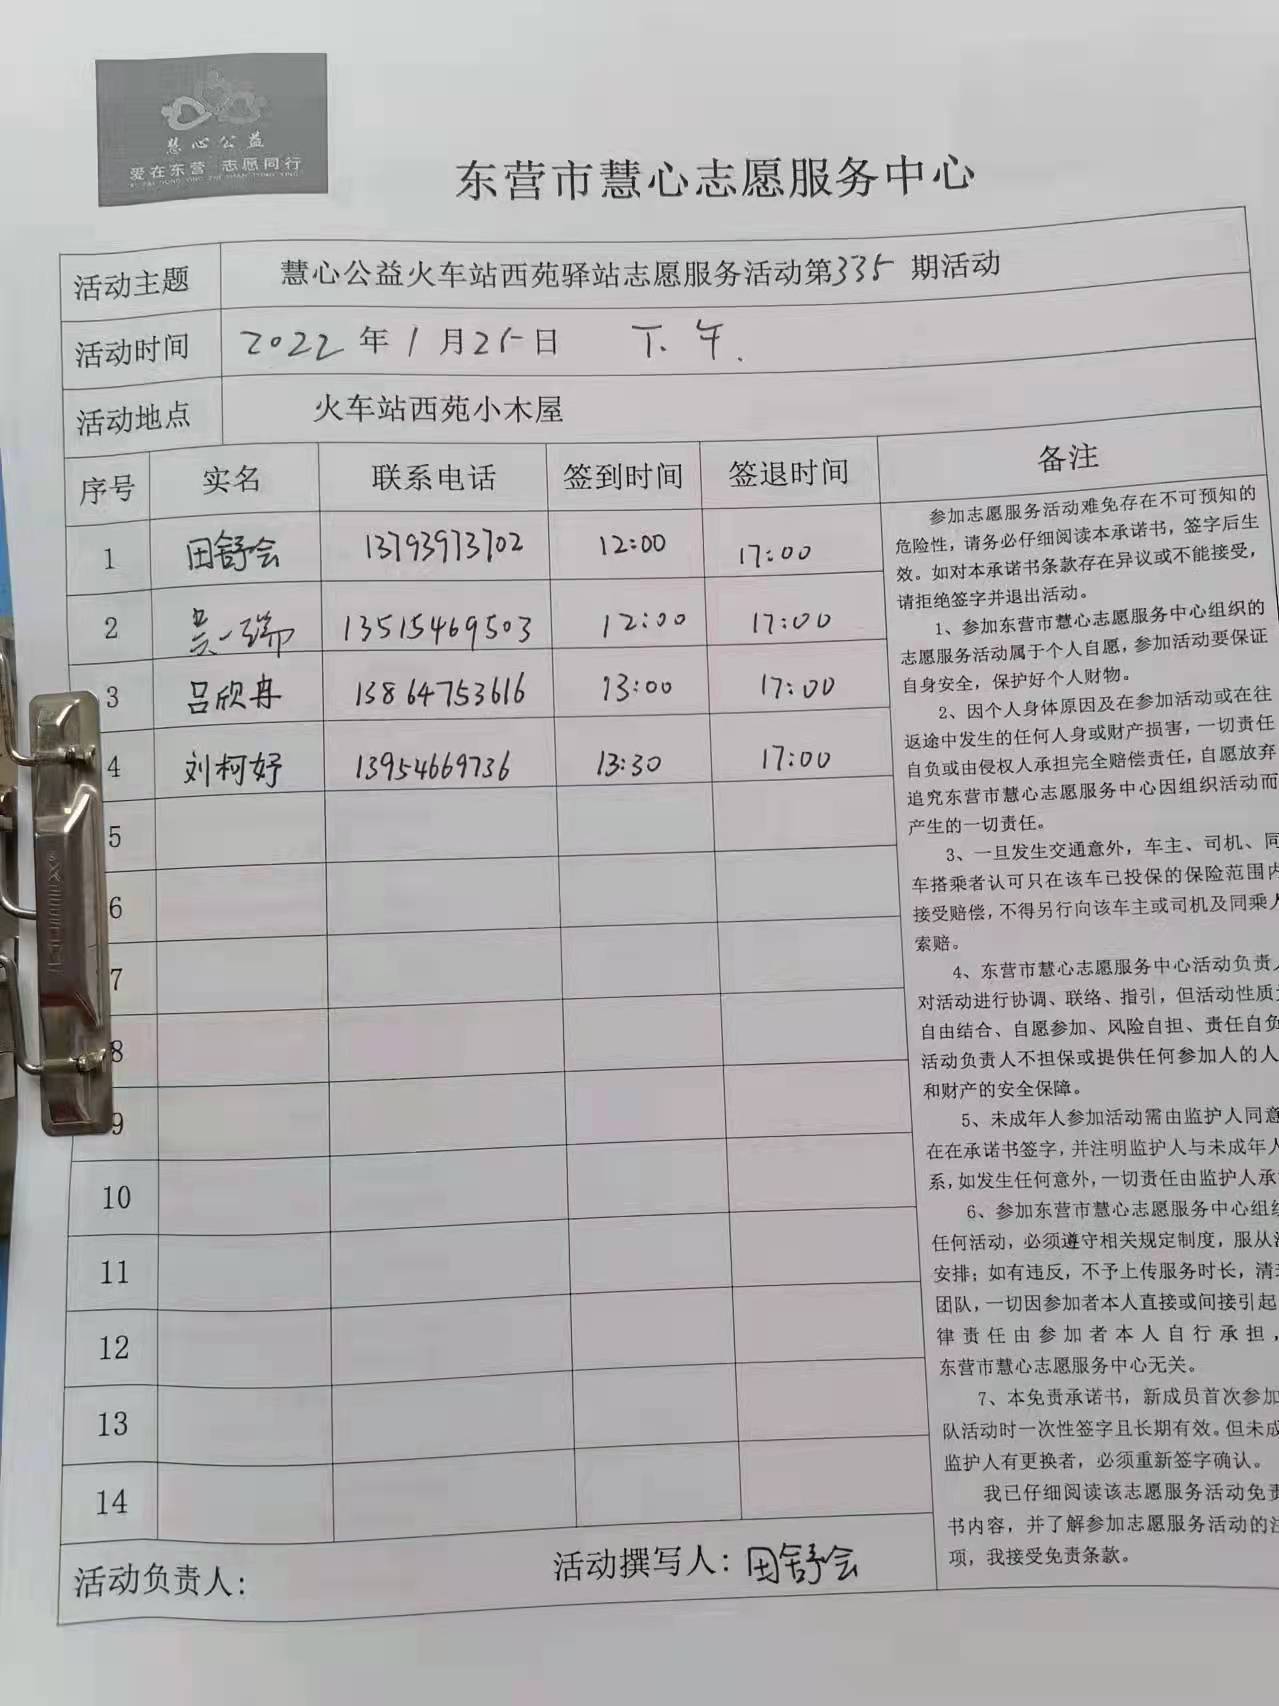 慧心公益
爱在东营 志愿同行
东营市慧心志愿服务中心
活动主题 慧心公益火车站西苑驿站志愿服务活动第335期活动
活动时间 2022年1月25日 下午.
活动地点 火车站西苑小木屋
序号 实名 联系电话 签到时间 签退时间 备注
1 田舒会 13793973702 12:00 17:00
2 吴一瑞 13515469503 12:00 17:00
3 吕欣冉 13864753616 13:00 17:00
4 刘柯妤 13954669736 13:30 17:00
5
6
7
8
9
10
11
12
13
14
参加志愿服务活动难免存在不可预知的
危险性，请务必仔细阅读本承诺书，签字后生
效。如对本承诺书条款存在异议或不能接受，
请拒绝签字并退出活动。
1、参加东营市慧心志愿服务中心组织的
志愿服务活动属于个人自愿，参加活动要保证
自身安全，保护好个人财物。
2、因个人身体原因及在参加活动或在往
返途中发生的任何人身或财产损害，一切责任
自负或由侵权人承担完全赔偿责任，自愿放弃
追究东营市慧心志愿服务中心因组织活动而
产生的一切责任。
3、一旦发生交通意外，车主、司机、同
车搭乘者认可只在该车已投保的保险范围内
接受赔偿，不得另行向该车主或司机及同乘人
索赔。
4、东营市慧心志愿服务中心活动负责人
对活动进行协调、联络、指引，但活动性质为
自由结合、自愿参加、风险自担、责任自负
活动负责人不担保或提供任何参加人的人
和财产的安全保障。
5、未成年人参加活动需由监护人同意
在在承诺书签字，并注明监护人与未成年人
系，如发生任何意外，一切责任由监护人承
6、参加东营市慧心志愿服务中心组织
任何活动，必须遵守相关规定制度，服从
安排；如有违反，不予上传服务时长，清
团队，一切因参加者本人直接或间接引起
律责任由参加者本人自行承担，
东营市慧心志愿服务中心无关。
7、本免责承诺书，新成员首次参加
队活动时一次性签字且长期有效。但未成
监护人有更换者，必须重新签字确认。
我已仔细阅读该志愿服务活动免责
书内容，并了解参加志愿服务活动的注
项，我接受免责条款。
活动负责人： 活动撰写人：田舒会